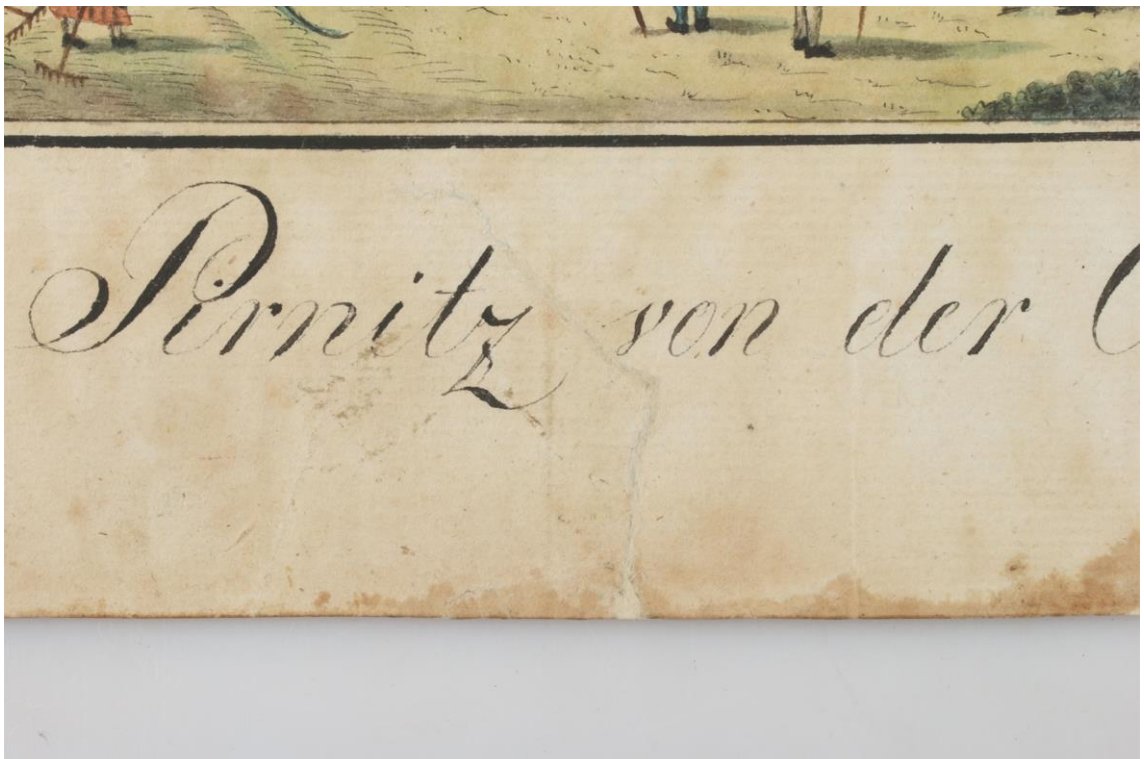 Pirnitz von der